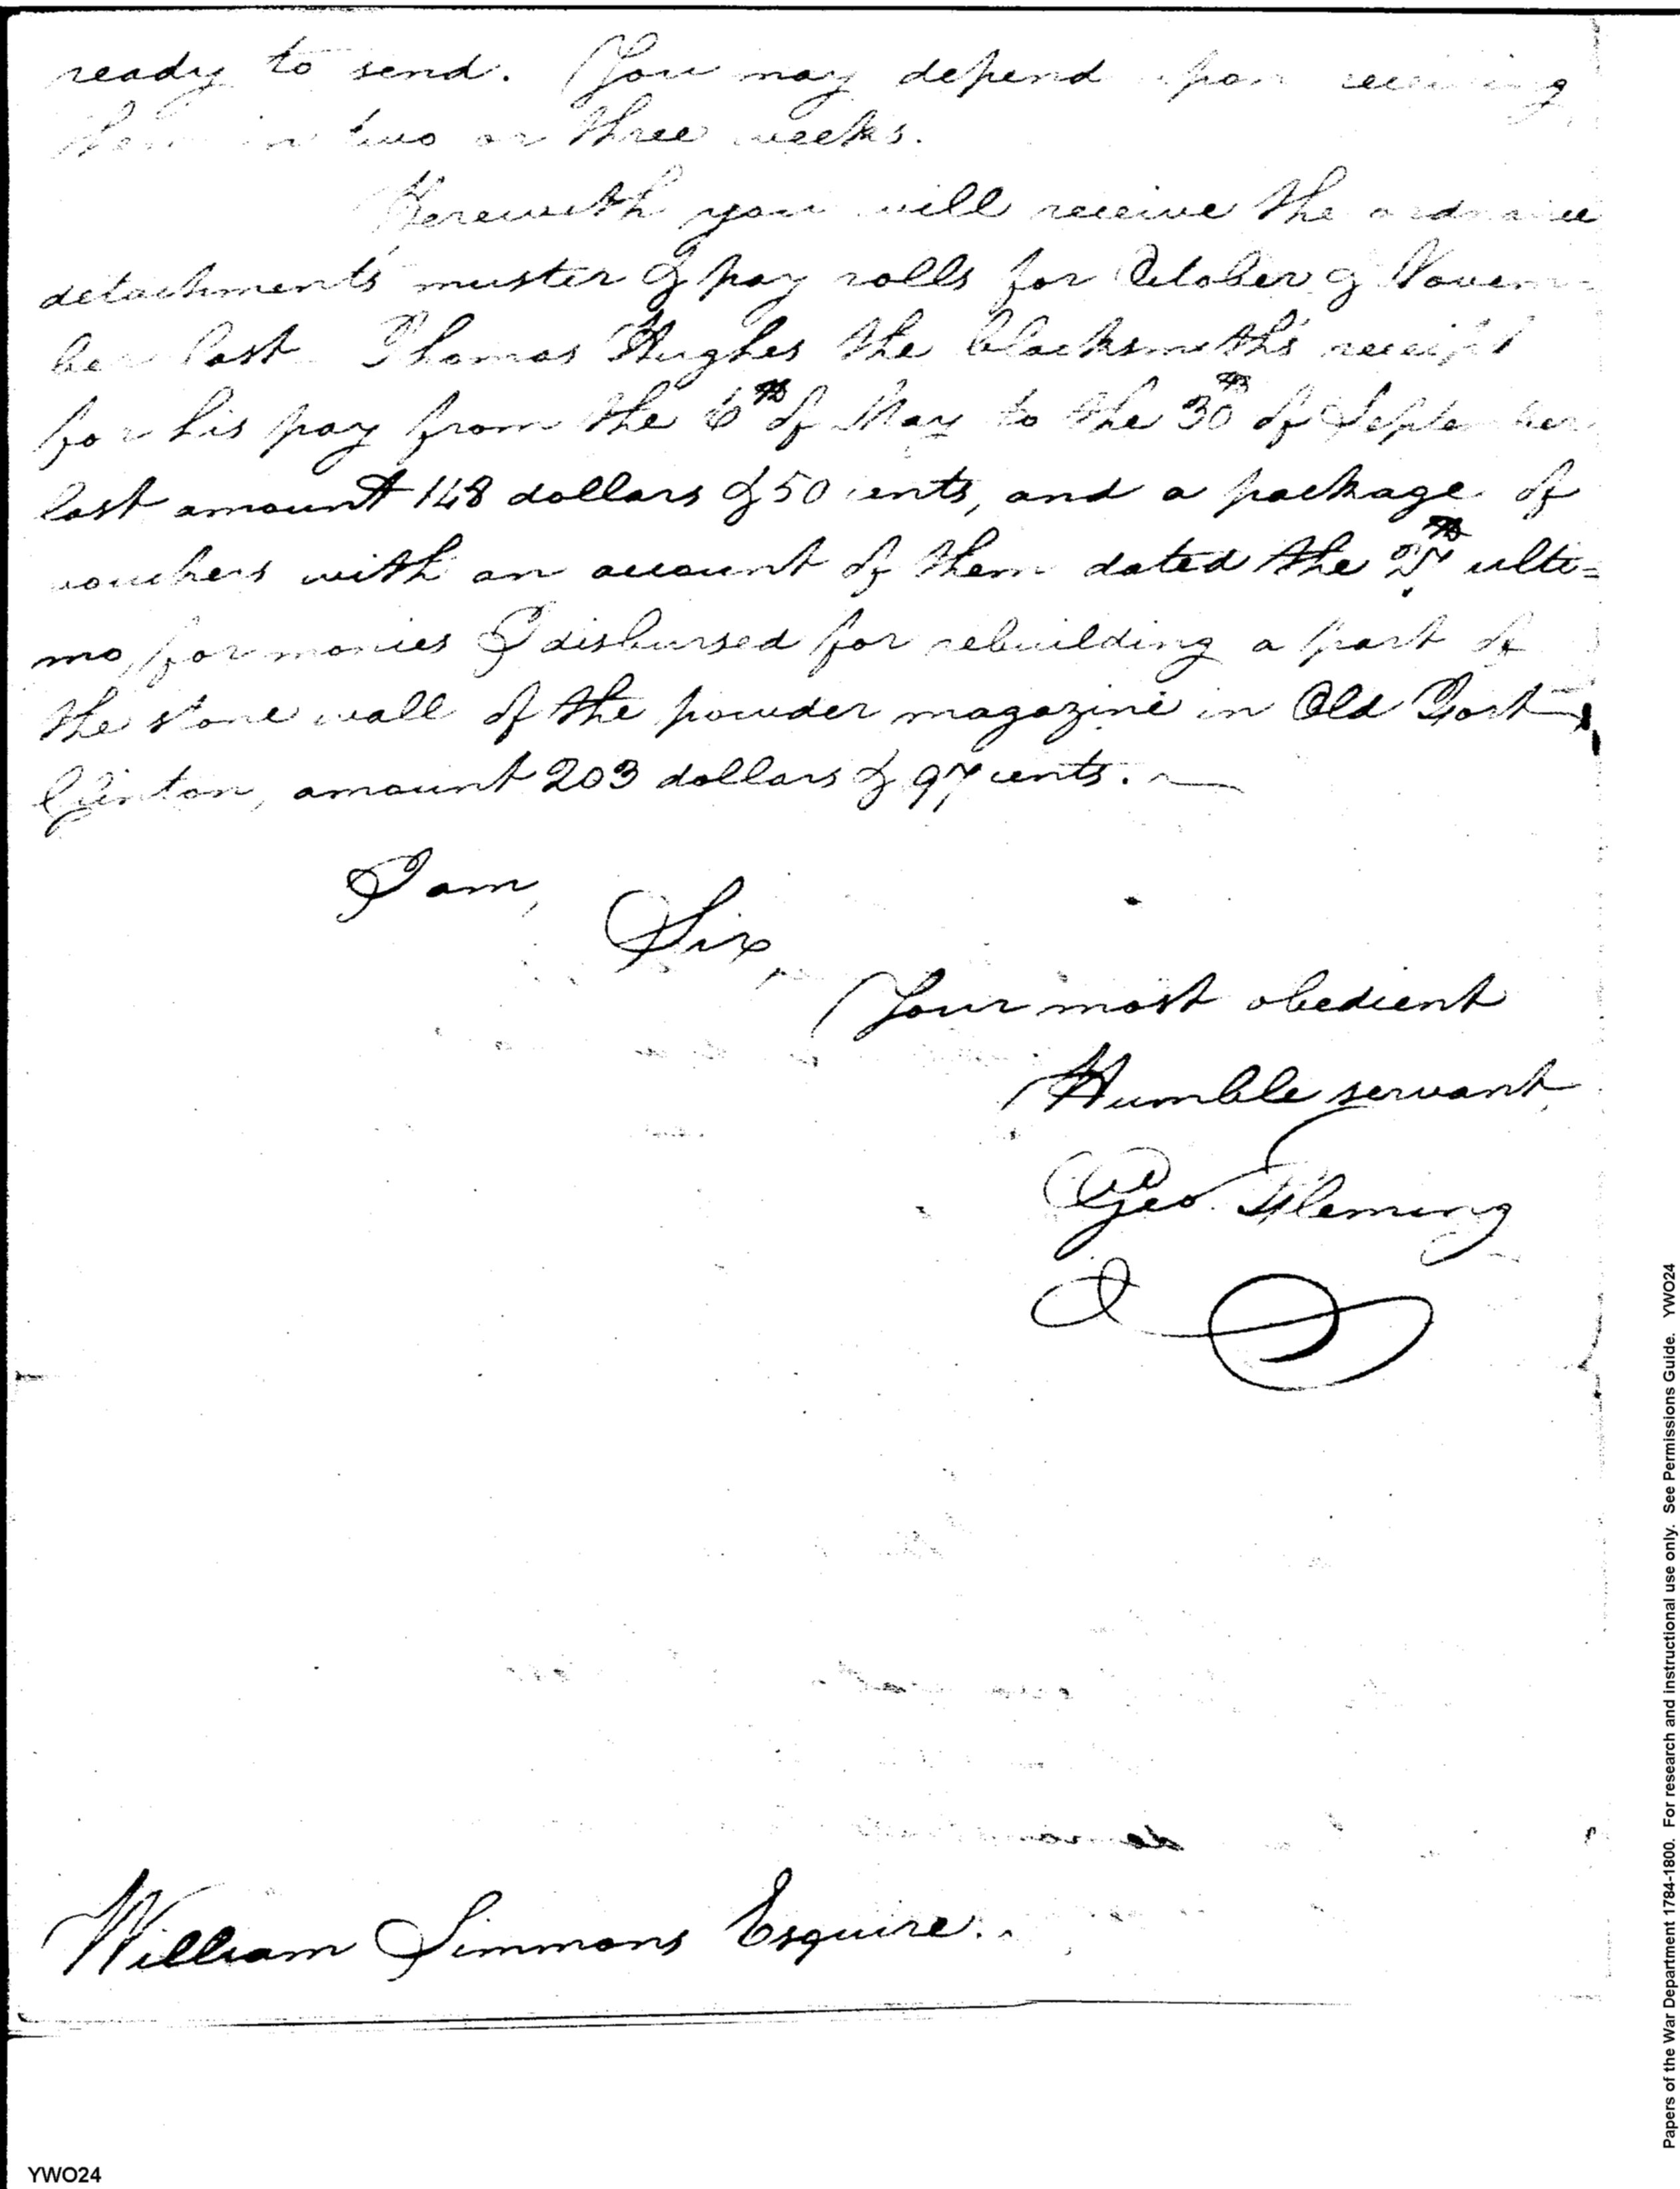 ready to send. You may depend upon receiving
them in two or three weeks.
Herewith you will receive the ordnance
detachments' muster & pay rolls for October & Novem-
ber last. Thomas Hughes the blacksmith's receipt
for his pay from the 6th of May to the 30th of September
last amount 148 dollars & 50 cents, and a package of
vouchers with an account of them dated the ulti=
mo, for monies I disbursed for rebuilding a part of
the stone wall of the powder magazine in Old Fort
Clinton, amount 203 dollars & 97 cents.
I am,
Sir,
Your most obedient
Humble servant
Geo. Fleming
William Simmons Esquire.
YWO24
Papers of the War Department 1784-1800. For research and instructional use only. See Permissions Guide. YWO24